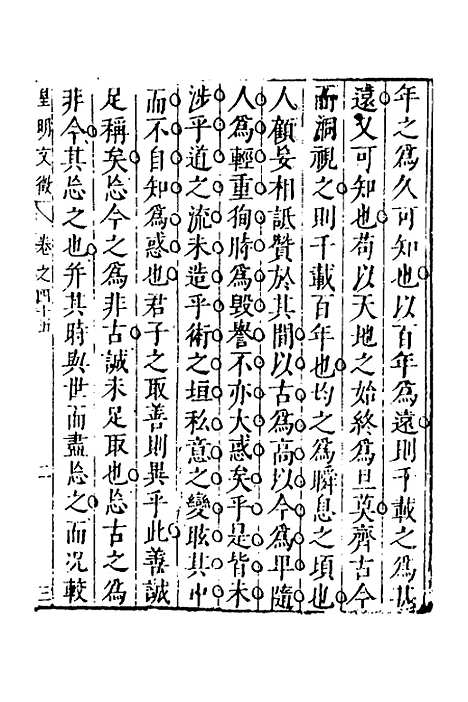 年之爲久可知也以百年爲遠則千載之爲甚
遠又可知也苟以天地之始終爲旦莫齊古今
而洞視之則千載百年也均之爲瞬息之頃也
人顧妄相詆贊於其間以古爲高以今爲平隨
人爲輕重徇時爲毀譽不亦大惑矣乎是皆未
涉乎道之流未造乎術之垣私意之變眩其中
而不自知爲惑也君子之取善則異乎此善誠
足稱矣忘今之爲非古誠未足取也忘古之爲
非今其忘之也并其時與世而盡忘之而况較
皇明文徵 卷之四十五 二 三